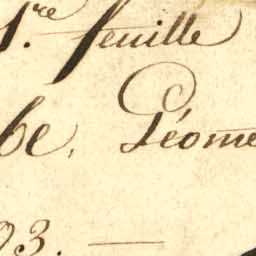 1.re feuille
be, Géome
93. —